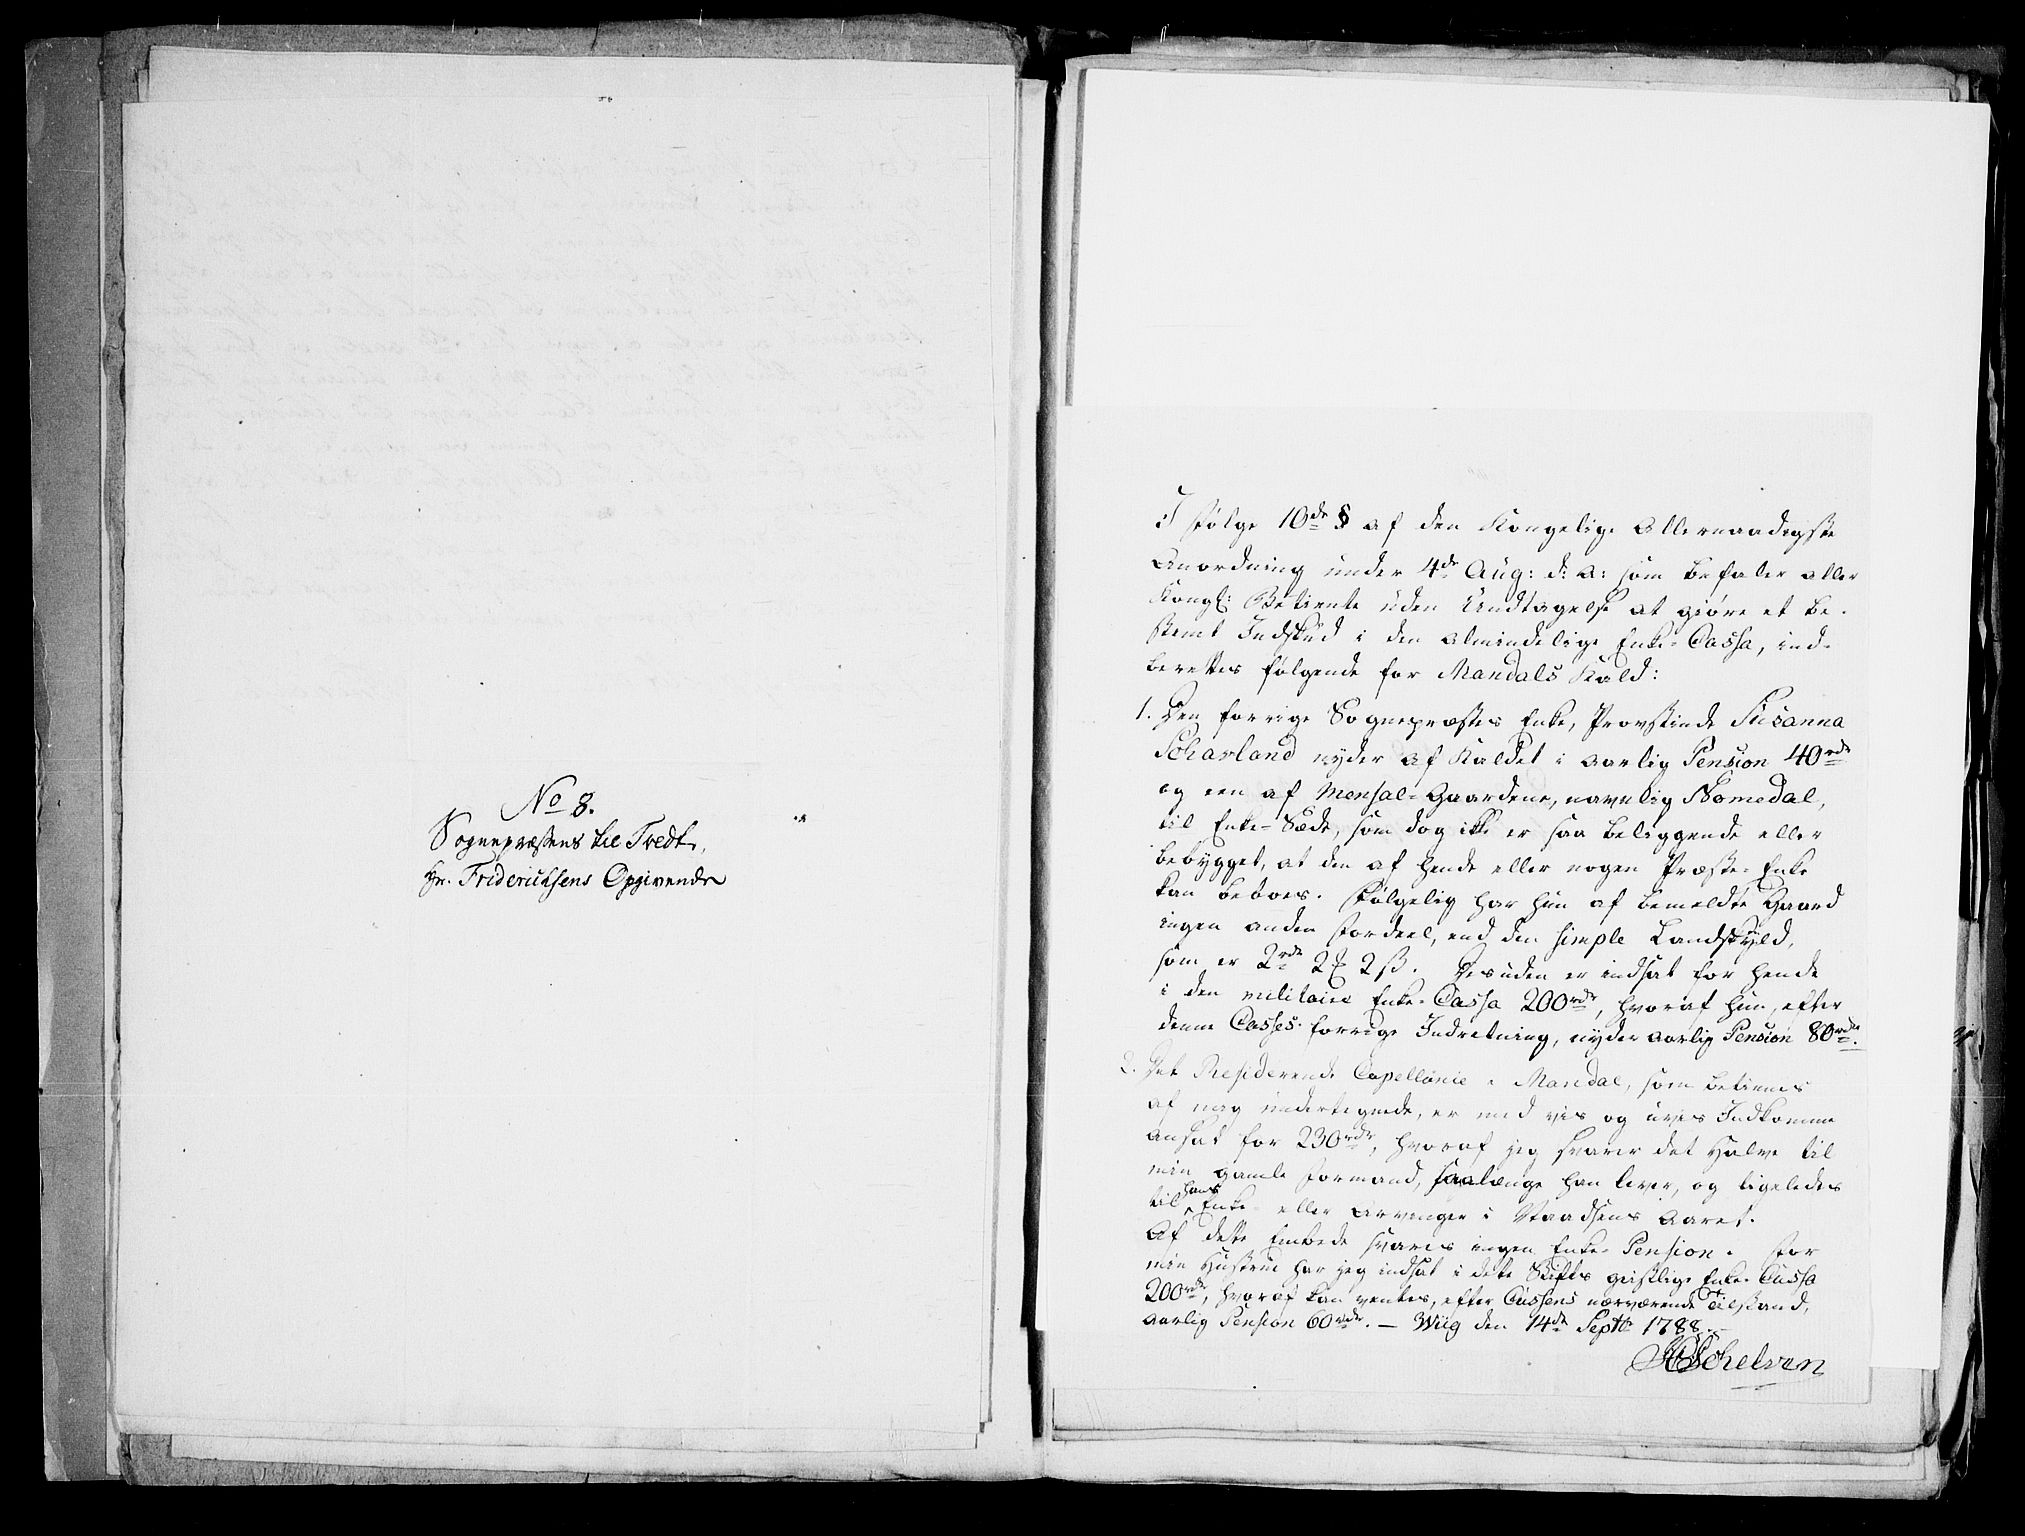 No 8.
Sognepræstens til Tredt,
Hr. Friderichsens Opgivende
I følge 10de § af den Kongelige Allernaadigste
Anordning under 4de Aug: d: A: som befaler alle
Kongl: Betiente uden Undtagelse at giøre et be-
stemt Indskud i den almindelige Enke-Cassa, ind-
berettes følgende for Mandals Kald:
1. Den forrige Sognepræstes Enke, Provstinde Susanna
Scharland nyder af Kaldet i aarlig Pension 40rdr
og een af Mensal-Gaardene, navnlig Nomedal,
til Enke-Sæde, som dog ikke er saa beliggende eller
bebygget, at den af hende eller nogen Præste-Enke
kan beboes. Følgelig har hun af bemeldte Gaard
ingen anden Fordeel, end den simple Landskyld,
som er 2rdr 2 2 ß. Desuden er indsat for hende
i den militaire Enke-Cassa 200rdr, hvoraf hun, efter
denne Casses forrige Indretning, nyder aarlig Pension 80rdr.
2. Det Residerende Capellanie i Mandal, som betienes
af mig undertegnede, er med vis og uvis Indkomme
ansat for 230rdr, hvoraf jeg svarer det Halve til
min gamle Formand, saalænge han lever, og ligeledes
til hans Enke eller Arvinger i Naadsens Aaret.
Af dette Embede svares ingen Enke-Pension. For
min Hustrue har jeg indsat i dette Stifts geistlige Enke-Cassa
200rdr, hvoraf kan ventes, efter Cassens nærværende Tilstand,
aarlig Pension 60rdr. — Wiig den 14de Septbr 1788.
Schelven